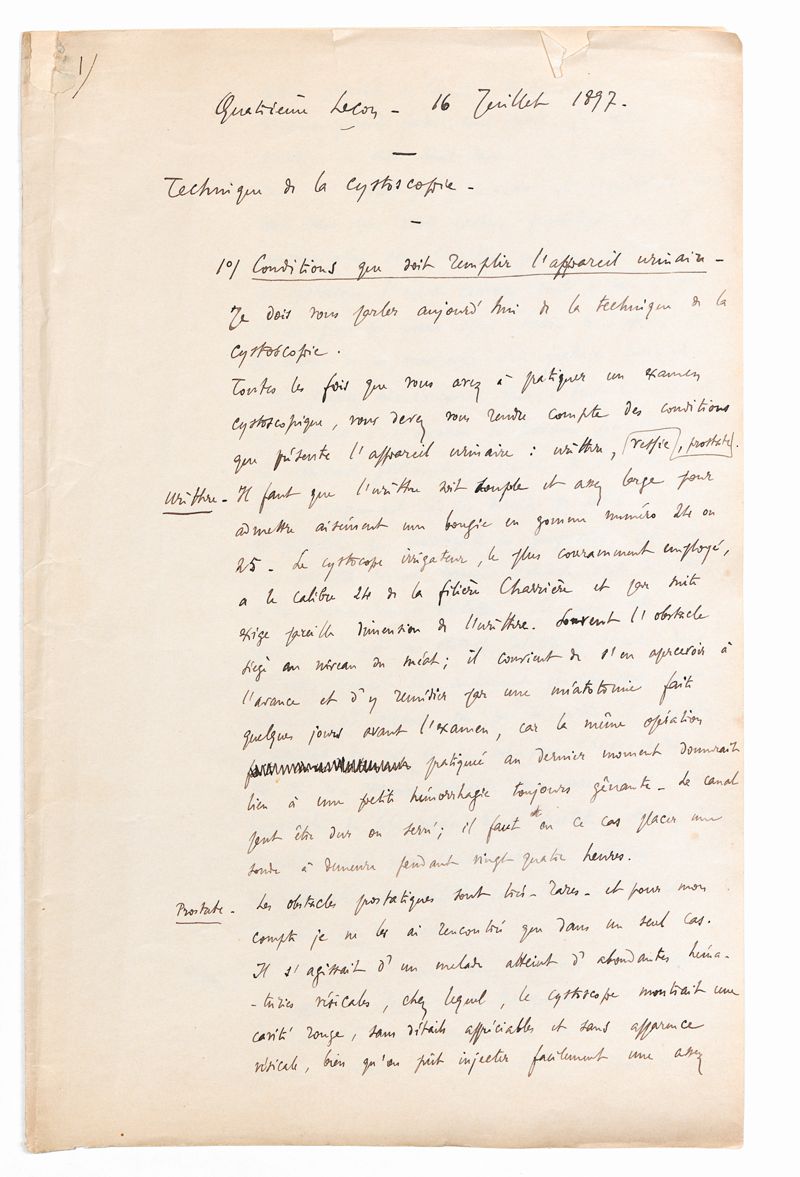 1)
Quatrième Leçon - 16 Juillet 1897.
Technique de la Cystoscopie -
1°/ Conditions que doit remplir l'appareil urinaire -
Je dois vous parler aujourd'hui de la technique de la
cystoscopie.
Toutes les fois que vous avez à pratiquer un examen
cystoscopique, vous devez vous rendre compte des conditions
que présente l'appareil urinaire : urèthre, vessie, prostate.
Urèthre - Il faut que l'urèthre soit souple et assez large pour
admettre aisément une bougie en gomme numéro 24 ou
25 - Le cystocope irrigateur, le plus couramment employé,
a le calibre 24 de la filière Charrière et par suite
exige pareille dimension de l'urèthre. Souvent l'obstacle
siège au niveau du méat; il convient de s'en apercevoir à
l'avance et d'y remédier par une méatotomie faite
quelques jours avant l'examen, car la même opération
pratiquée au dernier moment donnerait
lieu à une petite hémorrhagie toujours gênante - Le canal
peut être dur ou serré; il faut en ce cas placer une
sonde à demeure pendant vingt quatre heures.
Prostate - Les obstacles prostatiques sont très-rares - et pour mon
compte je ne les ai rencontrés que dans un seul cas.
Il s'agissait d'un malade atteint d'abondantes héma-
-turies vésicales, chez lequel, le cystoscope montrait une
cavité rouge, sans détails appréciables et sans apparence
vésicale, bien qu'on pût injecter facilement une assez